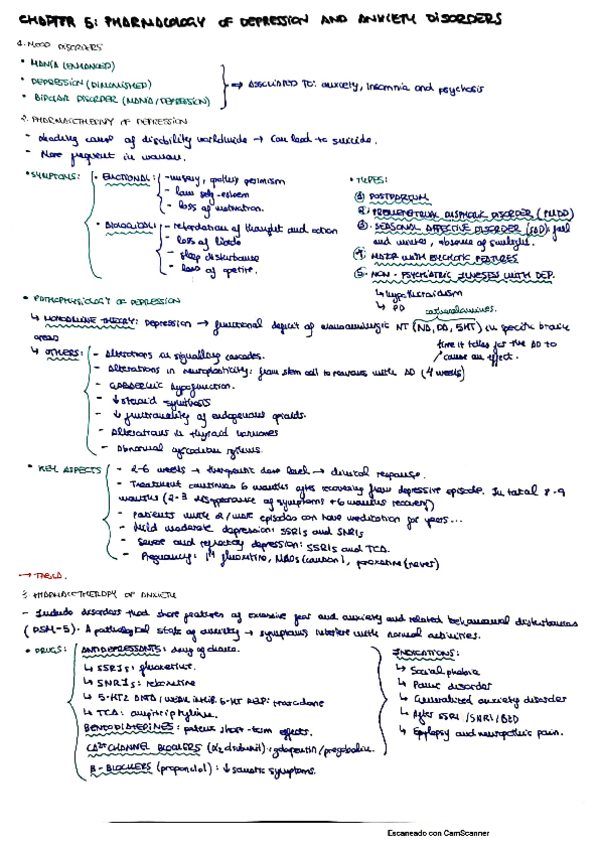 CHAPTER 5: PHARMACOLOGY OF DEPRESSION AND ANXIETY DISORDERS
1. MOOD DISORDERS
• MANIA (ENHANCED)
• DEPRESSION (DIMINISHED)
• BIPOLAR DISORDER (MANIA/DEPRESSION)
→ ASSOCIATED TO: anxiety, insomnia and psychosis
2. PHARMACOTHERAPY OF DEPRESSION
- Leading cause of disability worldwide → can lead to suicide.
- More frequent in woman.
• SYMPTOMS:
• EMOTIONAL: - misery, apathy pesimism
- low self-esteem
- loss of motivation.
• BIOLOGICAL: - retardation of thought and action
- loss of libido
- sleep disturbance
- loss of apetite.
• TYPES:
① POSTPARTUM
② PREMENSTRUAL DISPHORIC DISORDER (PMDD)
③ SEASONAL AFFECTIVE DISORDER (SAD): fall
and winter, absence of sunlight.
④ MAJOR WITH PSYCHOTIC FEATURES
⑤ NON-PSYCHIATRIC ILLNESSES WITH DEP.
↳ hypothyroidism
↳ PD
• PATHOPHYSIOLOGY OF DEPRESSION
catecholamines.
↳ MONOAMINE THEORY: Depression → functional deficit of monoaminergic NT (NA, DA, 5HT) in specific brain
areas
time it takes for the AD to
cause an effect.
↳ OTHERS: - Alterations in signalling cascades.
- Alterations in neuroplasticity: from stem cell to neurons with AD (4 weeks)
- GABAergic hypofunction.
- ↓ steroid synthesis
- ↓ functionality of endogenous opioids.
- Alterations in thyroid hormones
- Abnormal circadian systems.
• KEY ASPECTS - 2-6 weeks → therapeutic dose level → clinical response.
- Treatment continues 6 months after recovering from depressive episode. In total 8-9
months (2-3 disappearance of symptoms + 6 months recovery)
- Patients with 2/more episodes can have medication for years...
- Mild moderate depression: SSRIs and SNRIs
- Severe and refractory depression: SSRIs and TCA.
- Pregnancy: 1st fluoxetine, MAOs (caution), paroxetine (never)
→ TABLA.
3. PHARMACOTHERAPY OF ANXIETY
- Include disorders that share features of excessive fear and anxiety and related behavioural disturbances
(DSM-5). A pathological state of anxiety → symptoms interfere with normal activities.
• DRUGS: ANTIDEPRESSANTS: drug of choice.
↳ SSRIs: fluoxetine.
↳ SNRIs: reboxetine
↳ TCA: amitriptyline.
BENZODIAZEPINES: patient short-term effects.
Ca2+ CHANNEL BLOCKERS (α2δ subunit): gabapentin/pregabalin.
β-BLOCKERS (propanolol): ↓ somatic symptoms.
INDICATIONS:
↳ Social phobia
↳ Panic disorder
↳ Generalized anxiety disorder
↳ After SSRI/SNRI/BZD
↳ Epilepsy and neuropathic pain.
Escaneado con CamScanner